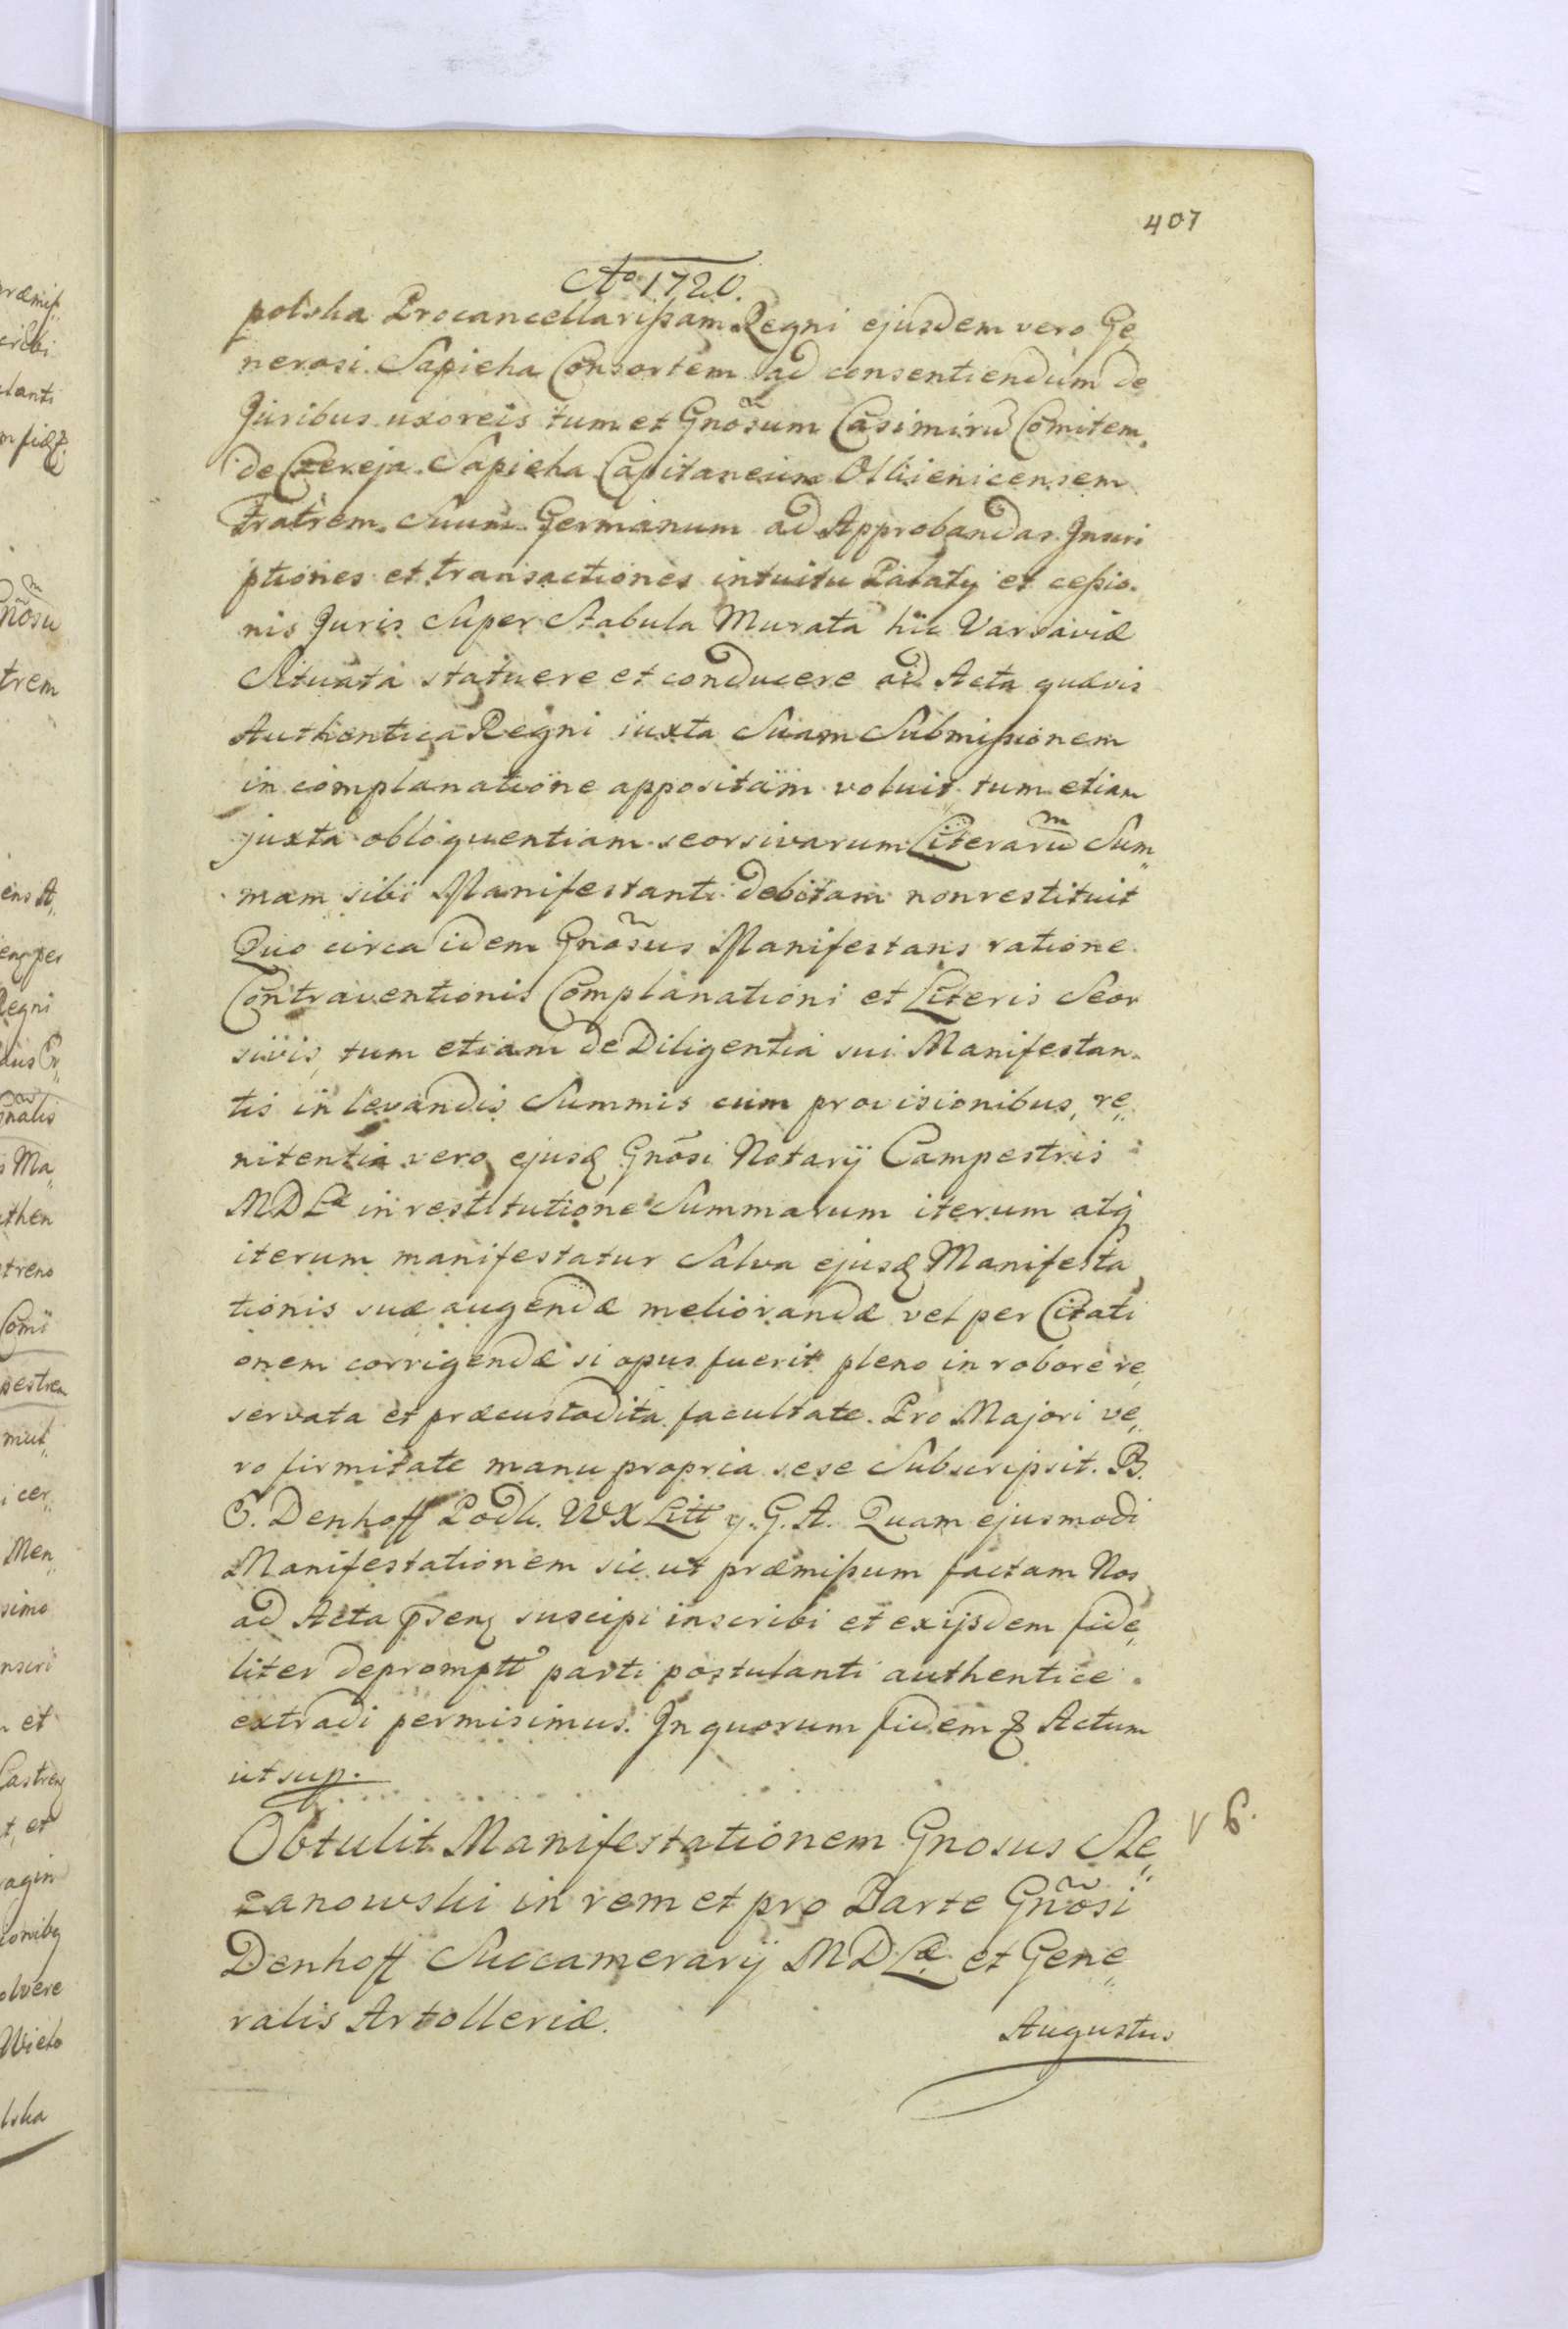 407
Ao 1720.
polska Procancellarißam Regni ejusdem vero Ge„
nerosi Sapieha Consortem ad consentiendum de
Juribus uxoreis tum et Gnõsum Casimirũ Comitem
de Czereja Sapieha Capitaneum Olkienicensem
Fratrem Suum Germanum ad Approbandas Inscri
ptiones et transactiones intuitu Palatÿ et ceßio
nis Juris Super Stabula Murata hic Varsaviæ
Situata statuere et conducere ad Acta quævis
Authentica Regni iuxta Suam Submißionem
in complanatione appositam voluit tum etiam
juxta obloquentiam seorsivarum Literarũ Sum„
mam sibi Manifestanti debitam non restituit
Quo circa idem Gnõsus Manifestans ratione
Contraventionis Complanationi et Literis Seor
sivis, tum etiam de Diligentia sui Manifestan„
tis in levandis Summis cum provisionibus, re„
nitentia vero ejusd Gnõsi Notarÿ Campestris
MDLæ in restitutione Summarum iterum atq
iterum manifestatur Salva ejusd Manifesta„
tionis suæ augendæ meliorandæ vel per Citati
onem corrigendæ si opus fuerit pleno in robore re„
servata et præcustodita facultate. Pro Majori ve„
ro firmitate manu propria sese Subscripsit. B.
G. Denhoff Podk. WXLitt y. G. A. Quam ejusmodi
Manifestationem sic ut præmißum factam Nos
ad Acta pseñ suscipi inscribi et ex ijsdem fide„
liter depromptt parti postulanti authentice
extradi permisimus. In quorum fidem & Actum
ut sup.
Obtulit Manifestationem Gnosus Ste„
zanowski in rem et pro Parte Gnõsi
Denhoff Succamerarÿ MDLæ et Gene„
ralis Artolleriæ.
Augustus